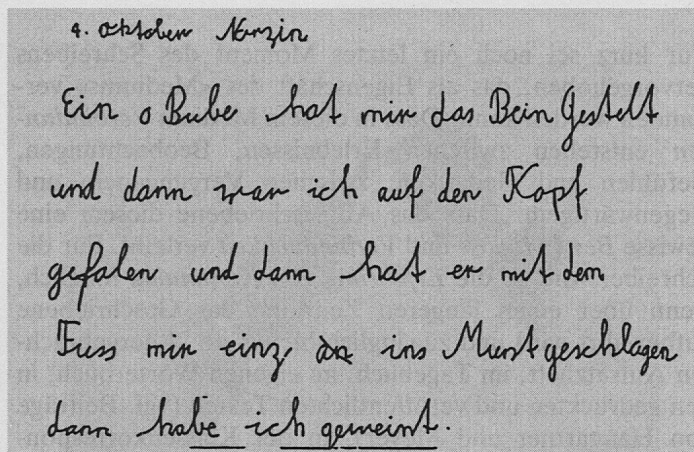 4. Oktober
Ein o Bube hat mir das Bein Gestelt
und dann war ich auf den Kopf
gefalen und dann hat er mit dem
Fuss mir einz, ins geschlagen
dann habe ich gemeint.